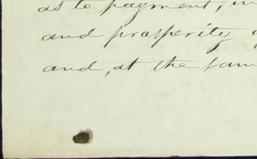 as to payment, in
and prosperity
and, at the sam